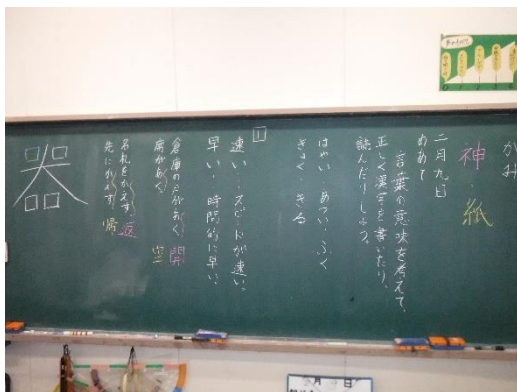 かみ
神・紙
二月九日
めあて
言葉の意味を考えて、
正しく漢字を書いたり、
読んだりしよう。
はやい・あつい・ふく
きょく・きる
1
速い・・スピードが速い。
早い・・時間的に早い。
倉庫の戸があく 開
席があく 空
名札をかえす 返
先にかえす 帰
器
月 日